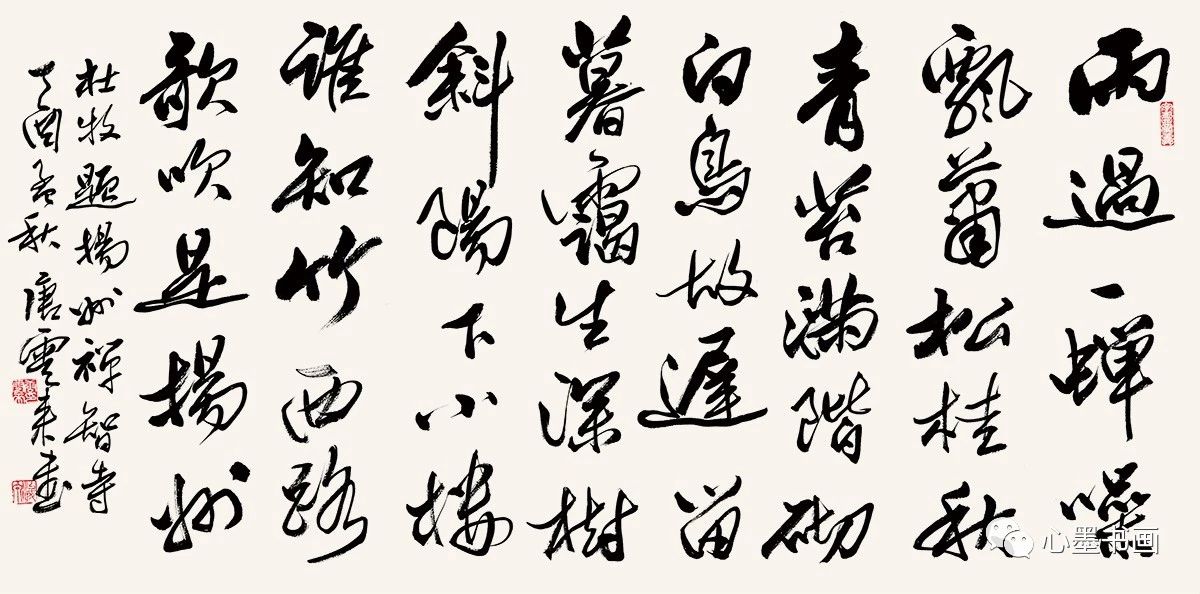 雨過一蟬噪
飄蕭松桂秋
青苔滿階砌
白鳥故遲留
暮靄生深樹
斜陽下小樓
誰知竹西路
歌吹是揚州
杜牧題揚州禪智寺
丁酉孟秋 唐雲来書
心墨书画